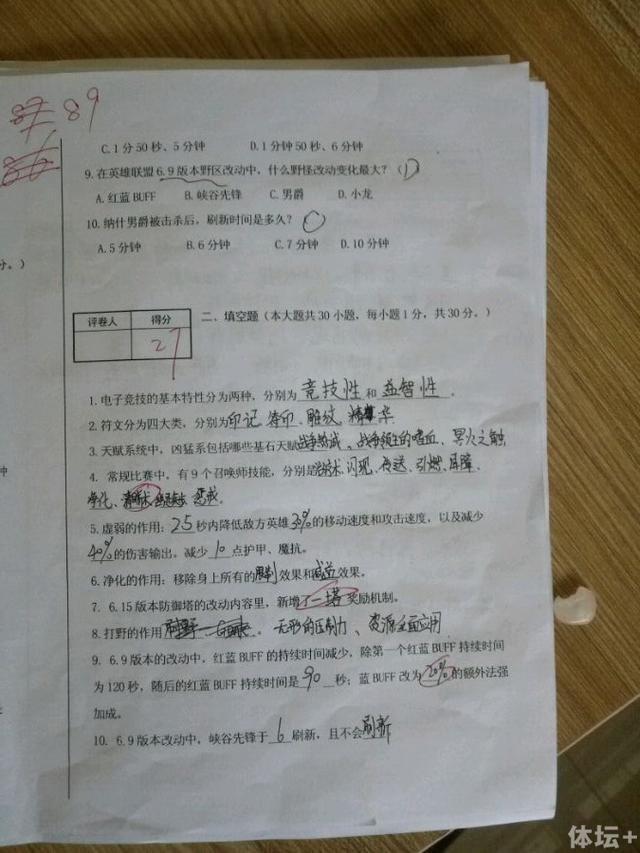 89
C.1 分 50 秒、5 分钟 D.1 分钟 50 秒、6 分钟
9. 在英雄联盟 6.9 版本野区改动中，什么野怪改动变化最大？（D）
A. 红蓝 BUFF B. 峡谷先锋 C. 男爵 D. 小龙
10. 纳什男爵被击杀后，刷新时间是多久？（）
A.5 分钟 B.6 分钟 C.7 分钟 D.10 分钟
分。）
评卷人 得分
27
二、填空题（本大题共 30 小题，每小题 1 分，共 30 分。）
1. 电子竞技的基本特性分为两种，分别为 竞技性 和 益智性 。
2. 符文分为四大类，分别为印记、符印、雕纹、精华
3. 天赋系统中，凶猛系包括哪些基石天赋战争热诚、战争领主的嗜血、冥火之触
4. 常规比赛中，有 9 个召唤师技能，分别是治疗术、闪现、传送、引燃、屏障、
钟
净化、清晰术、惩戒
5. 虚弱的作用：2.5 秒内降低敌方英雄30%的移动速度和攻击速度，以及减少
40%的伤害输出。减少 10 点护甲、魔抗。
6. 净化的作用：移除身上所有的限制效果和减益效果。
7. 6.15 版本防御塔的改动内容里，新增了一塔奖励机制。
8. 打野的作用 。无形的压制力、资源全面应用
9. 6.9 版本的改动中，红蓝 BUFF 的持续时间减少，除第一个红蓝 BUFF 持续时间
为 120 秒，随后的红蓝 BUFF 持续时间是 90 秒；蓝 BUFF 改为 20%的额外法强
加成。
10. 6.9 版本改动中，峡谷先锋于 6 刷新，且不会刷新
体坛+